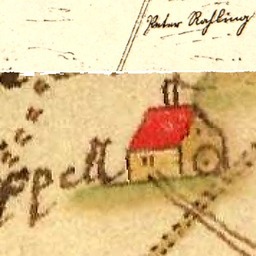 Peter Rahling
ppell